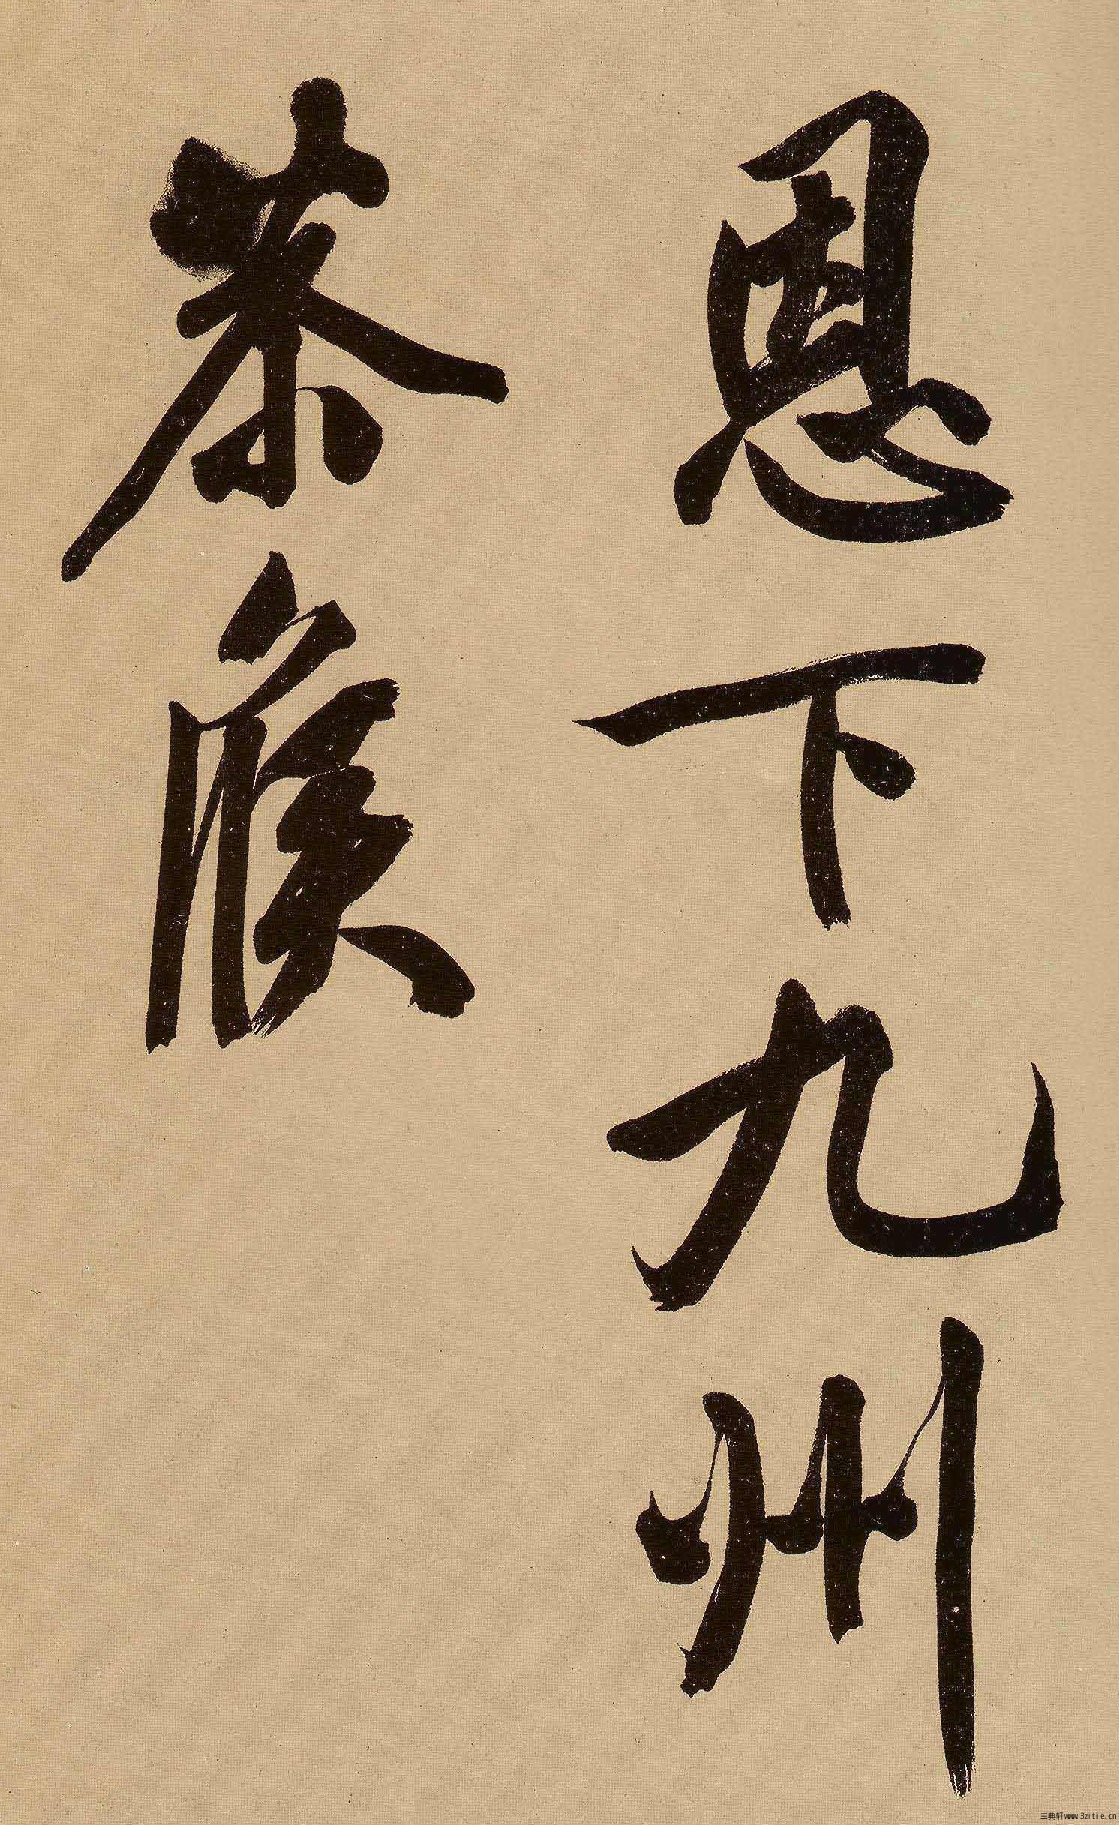 恩下九州
茶候
三典轩www.3zitie.cn